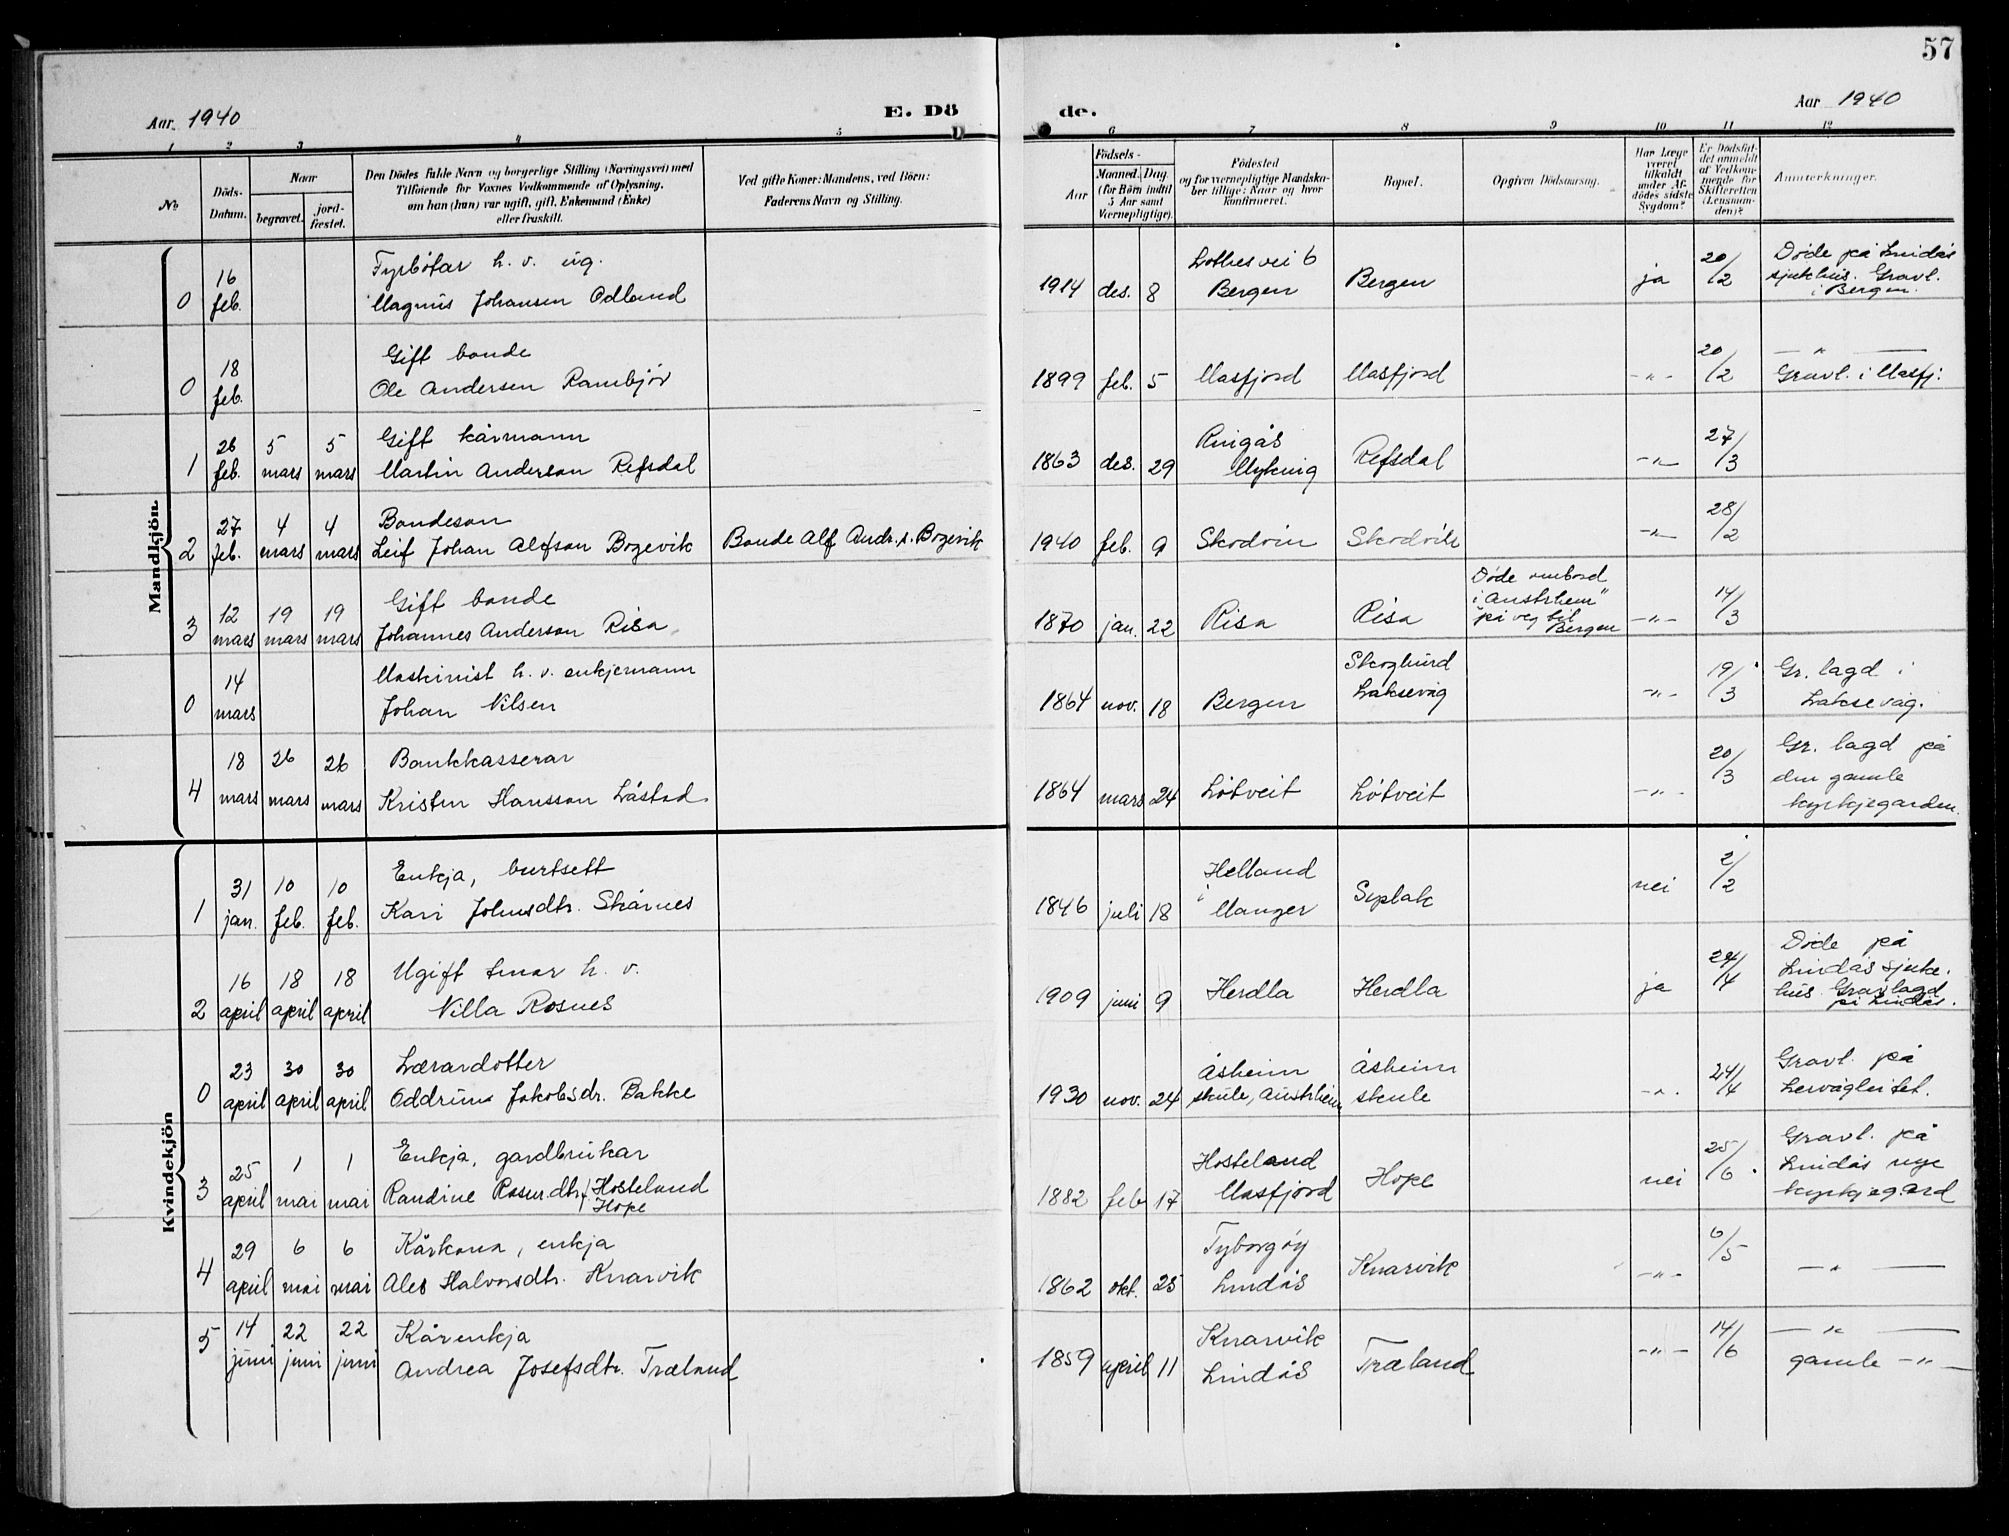 57
Aar 1940 E. Dö de. Aar 1940
1 2 3 4 5 6 7 8 9 10 11 12
No
Döds-Datum.
Naar
begravet.
jord-fæstet.
Den Dödes fulde Navn og borgerlige Stilling (Næringsvei) med
Tilföiende for Voxnes Vedkommende af Oplysning,
om han (hun) var ugift, gift, Enkemand (Enke)
eller fraskilt.
Ved gifte Koner: Mandens, ved Börn:
Faderens Navn og Stilling.
Födsels-
Aar
Maaned. Dag
(for Börn indtil
5 Aar samt
Værnepligtige).
Födested
og for værnepligtige Mandska-
ber tillige: Naar og hvor
konfirmeret.
Bopæl.
Opgiven Dödsaarsag.
Har Læge
været
tilkaldt
under Af-
dödes sidste
Sygdom?
Er Dödsfal-
det anmeldt
af Vedkom-
mende for
Skifteretten
(Lensman-
den)?
Anmærkninger.
Mandkjön.
0 16 feb. Tyrbøtar h. v. ug.
Magnus Johansen Odland
1914 des. 8 Lothesvei 6
Bergen Bergen ja 20/2 Døde på Lindås
sjukhus. Gravl.
i Bergen.
0 18 feb. Gift bonde
Ole Andersen Rambjør
1899 feb. 5 Masfjord Masfjord -"- 20/2 — " —
Gravl. i Masfj.
1 26 feb. 5 mars 5 mars Gift kårmann
Martin Anderson Refsdal
1863 des. 29 Ringås
Myking Refsdal -"- 27/3
2 27 feb. 4 mars 4 mars Bondeson
Leif Johan Alfson Bogevik Bonde Alf Andr.s. Bogevik
1940 feb. 9 Skodvin Skodvin -"- 28/2
3 12 mars 19 mars 19 mars Gift bonde
Johannes Anderson Risa
1870 jan. 22 Risa Risa Døde ombord
i "Austrheim"
på veg til
Bergen -"- 14/3
0 14 mars Maskinist h. v. enkjemann
Johan Nilsen
1864 nov. 18 Bergen Skoglund
Laksevåg -"- 19/3 Gr. lagd i
Laksevåg.
4 18 mars 26 mars 26 mars Bankkasserar
Kristen Hansson Låstad
1864 mars 24 Løtveit Løtveit -"- 20/3 Gr. lagd på
den gamle
kyrkjegarden.
Kvindekjön
1 31 jan. 10 feb. 10 feb. Enkja, burtsett
Kari Johnsdtr. Skårnes
1846 juli 18 Helland
i Manger Seplak nei 2/2
2 16 april 18 april 18 april Ugift tenar h. v.
Villa Rosnes
1909 juni 9 Herdla Herdla ja 24/4 Døde på
Lindås sjuke-
hus. Gravlagd
på Lindås.
0 23 april 30 april 30 april Lærardotter
Oddrun Jakobsdr. Bakke
1930 nov. 24 Åsheim
skule, Austrheim Åsheim
skule -"- 24/4 Gravl. på
Lervågleitet.
3 25 april 1 mai 1 mai Enkja, gardbrukar
Randine Rasm.dtr. Hosteland
Hope
1882 feb 17 Hosteland
Masfjord Hope nei 25/6 Gravl. på
Lindås nye
kyrkjegard
4 29 april 6 mai 6 mai Kårkona, enkja
Ales Halvorsdtr. Knarvik
1862 okt. 25 Fyborgøy
Lindås Knarvik -"- 6/5 — " —
5 14 juni 22 juni 22 juni Kårenkja
Andrea Josefsdtr. Træland
1859 april 11 Knarvik
Lindås Træland -"- 14/6 — " —
gamle -"-